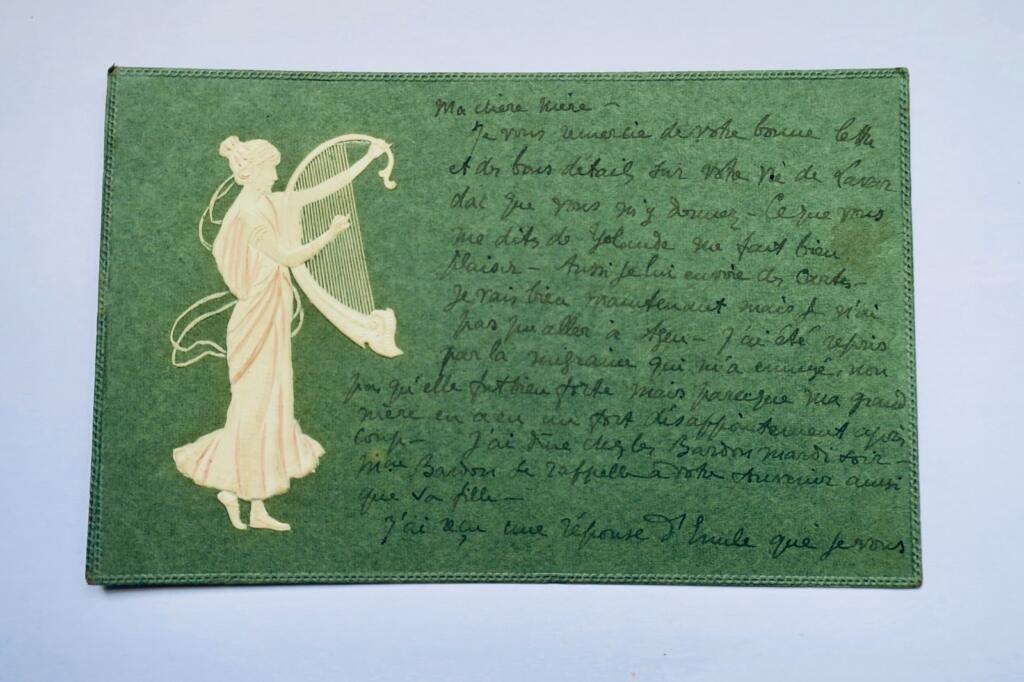 Ma chère mère –
Je vous remercie de votre bonne lettre
et des bons détails sur votre vie de Lavar
dac que vous m'y donnez – Ce que vous
me dites de Yolande me fait bien
plaisir – Aussi je lui envoie des cartes –
Je vais bien maintenant mais je n'ai
pas pu aller à Agen – J'ai été repris
par la migraine qui m'a ennuyé, non
pas qu'elle fut bien forte mais parceque ma grand
mère en a eu un fort désappointement après
coup – J'ai dîné chez les Bardon mardi soir –
Mme Bardon se rappelle à votre souvenir ainsi
que sa fille –
J'ai reçu une réponse d'Emile que je vous